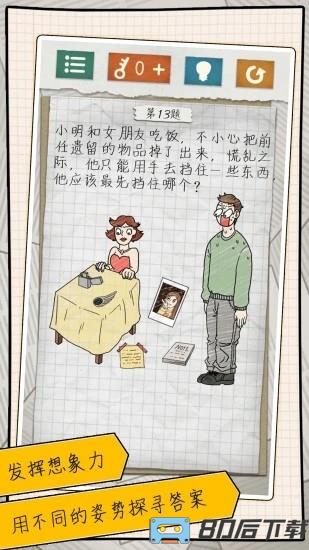 0+
第13题
小明和女朋友吃饭，不小心把前
任遗留的物品掉了出来，慌乱之
际，他只能用手去挡住一些东西
他应该最先挡住哪个？
NO1.
发挥想象力
用不同的姿势探寻答案
80后下载